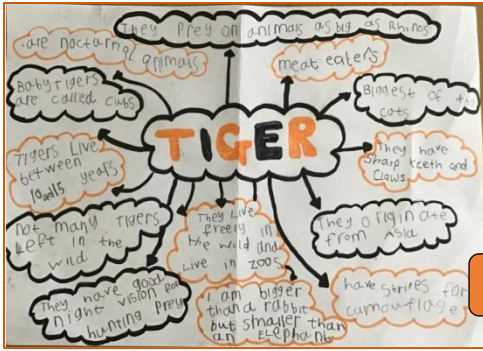 They Prey on animals as big as Rhinos
are nocturnal animals
meat eaters
Baby Tigers
are called cubs
Biggest of the
cats
TIGER
Tigers Live
between
10and15 years
They have
sharp teeth and
claws
not many Tigers
Left in the
wild
They Live
freely in
the wild and
Live in zoos
They originate
from Asia
They have good
night vision for
hunting Prey
I am bigger
than a rabbit
but smaller than
an Elephant
have stripes for
camouflage